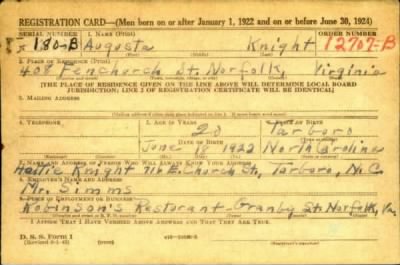 REGISTRATION CARD—(Men born on or after January 1, 1922 and on or before June 30, 1924)
SERIAL NUMBER 1. NAME (Print) ORDER NUMBER
x 180-B Augusta Knight 12707-B
2. PLACE OF RESIDENCE (Print)
408 Fenchurch St. Norfolk, Virginia
[THE PLACE OF RESIDENCE GIVEN ON THE LINE ABOVE WILL DETERMINE LOCAL BOARD
JURISDICTION; LINE 2 OF REGISTRATION CERTIFICATE WILL BE IDENTICAL]
3. MAILING ADDRESS
4. TELEPHONE 5. AGE IN YEARS 6. PLACE OF BIRTH
20 Tarboro
June 18 1922 North Carolina
7. NAME AND ADDRESS OF PERSON WHO WILL ALWAYS KNOW YOUR ADDRESS
Hattie Knight 716 E. Church St., Tarboro, N.C.
8. EMPLOYER'S NAME AND ADDRESS
Mr. Simms
9. PLACE OF EMPLOYMENT OR BUSINESS
Robinson's Restorant-Granby St. Norfolk, Va.
I AFFIRM THAT I HAVE VERIFIED ABOVE ANSWERS AND THAT THEY ARE TRUE.
D. S. S. Form 1